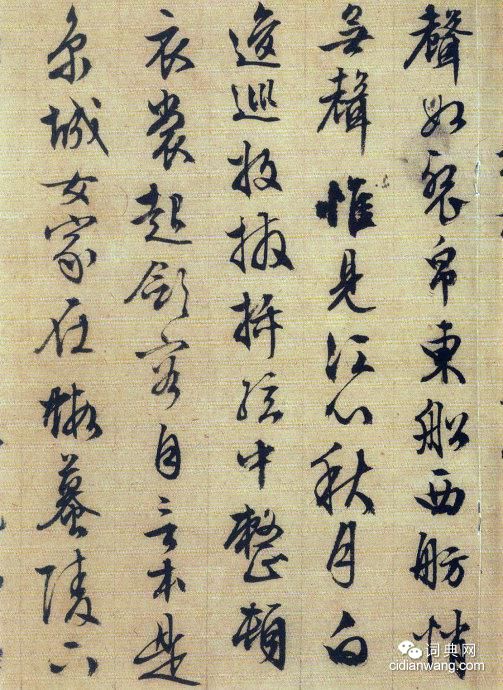 聲如裂帛東船西舫悄
無聲惟見江心秋月白
逡巡放撥插絃中整頓
衣裳起斂容自言本是
京城女家在蝦蟇陵下
词典网
cidianwang.com